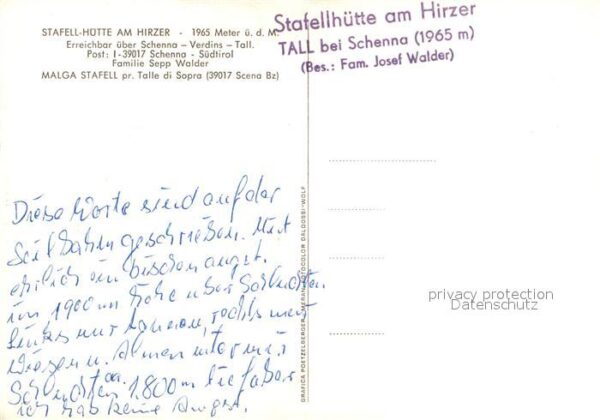 STAFELL-HÜTTE AM HIRZER - 1965 Meter ü. d. M.
Erreichbar über Schenna - Verdins - Tall.
Post: I-39017 Schenna - Südtirol
Familie Sepp Walder
MALGA STAFELL pr. Talle di Sopra (39017 Scena Bz)
Stafellhütte am Hirzer
TALL bei Schenna (1965 m)
(Bes.: Fam. Josef Walder)
Diese Karte sind auf der
Seilbahn geschrieben. Mut
ehrlich ein bischen angst.
in 1900m Höhe über Schluchten
links nur Tannen, rechts nur
Wiesen u. Almen unter mir
Schluchten ca. 1.800 m tief aber
ich hab keine Angst.
GRAFICA POETZELBERGER - MERAN - FOTOCOLOR DALDOSSI-WOLF
privacy protection
Datenschutz